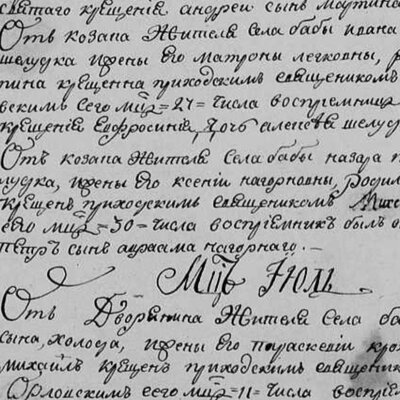 святаго крещенія андрей сынъ мартина
Отъ козака жителя села бабы ивана
шелудка ижены его матроны легковны, р
пина крещенна приходскимъ священикомъ
вскимъ сего мцъ =27= числа воспріемница
крещенія Евфросинія, дочь алексѣя шелуд
Отъ козака жителя Села бабы назара п
лудка, ижены его ксеніи нагорновны, родил
крещенъ приходскимъ священикомъ Миха
сего мцъ =30= числа воспріемникъ былъ о
петръ сынъ авраама нагорнаго. —
Мцъ Июль
Отъ Дворянина жителя Села ба
сына, холода, ижены его параскевіи кро
михаилъ крещенъ приходскимъ священик
Орловскимъ сего мцъ =11= числа воспріем